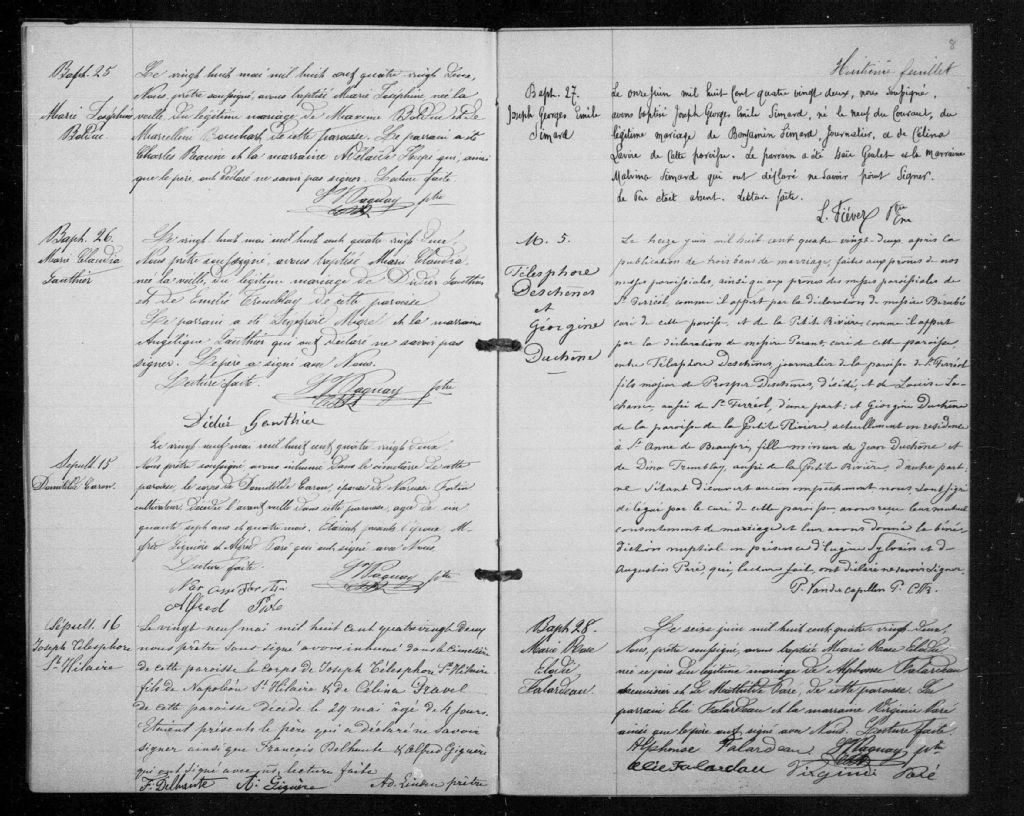 Bapt. 25
Marie Joséphine
Bolduc
Le vingt huit mai mil huit cent quatre vingt deux,
Nous prêtre soussigné, avons baptisé Marie Josephine, née la
veille, du légitime mariage de Maxime Bolduc et de
Marcelline Bouchard de cette paroisse. Le parrain a été
Charles Racine et la marraine Adelaide qui, ainsi
que le père, ont déclaré ne savoir pas signer. Lecture faite
ptre
Bapt. 26.
Marie Claudia
Gauthier
Le vingt huit mai mil huit cent quatre vingt deux,
Nous prêtre soussigné, avons baptisé Marie Claudia,
née la veille, du légitime mariage de Didier Gauthier
et de Emélie Tremblay de cette paroisse
Le parrain a été et la marraine
Angélique Gauthier qui ont déclaré ne savoir pas
signer. Le père a signé avec Nous.
Lecture faite. ptre
Didier Gauthier
Sepult. 15
Domitilde Caron.
Le vingt neuf mai mil huit cent quatre vingt deux
Nous prêtre soussigné, avons inhumé dans le cimetière de cette
paroisse, le corps de Domitilde Caron, épouse de Narcisse
cultivateur, décédée l'avant veille dans cette paroisse, agée de cin
quante sept ans et quatre mois. Etaient présents l'époux
Giguère et Alfred Paré qui ont signé avec Nous
Lecture faite. ptre
Alfred Paré
Sépult. 16
Joseph Télesphore
St. Hilaire
Le vingt neuf mai mil huit cent quatre vingt deux
nous prêtre sous signé avons inhumé dans le cimetière
de cette paroisse le corps de Joseph Télesphore St. Hilaire
fils de Napoléon St. Hilaire & de Célina Gravel
de cette paroisse décédé le 29 mai âgé de 4 jours.
Etaient présents le père qui a déclaré ne savoir
signer ainsi que François Delhaute & Alfred Giguère
qui ont signé avec ns. lecture faite
F. Delhaute A. Giguère prêtre
8
Huitième feuillet
Baph. 27.
Joseph Georges Emile
Simard
Le onze juin mil huit cent quatre vingt deux, nous soussigné,
avons baptisé Joseph George Emile Simard, né le neuf du courant, du
légitime mariage de Benjamin Simard, journalier, et de Célina
Lavoie de cette paroisse. Le parrain a été et la marraine
Malvina Simard qui ont déclaré ne savoir point signer.
Le Père était absent. Lecture faite.
L. Fiévez Ptre
M. 5.
Télesphore
Deschênes
et
Géorgine
Duchêne
Le treize juin mil huit cent quatre vingt deux, après la
publication de trois bans de mariage, faites aux prones de nos
messes paroissiales, ainsi qu'aux prônes des messes paroissiales de
St. Ferréol, comme il appert par la déclaration de messire Bérubé
curé de cette paroisse, et de la Petite Rivière, comme il appert
par la déclaration de messire Parant, curé de cette paroisse,
entre Télesphore Deschênes, journalier de la paroisse de St. Ferréol
fils majeur de Prosper Deschênes, décédé, et de Louise La-
chance, aussi de St. Ferréol, d'une part; et Géorgine Duchêne
de la paroisse de la Petite Rivière actuellement en résidence
à St. Anne de Beaupré, fille mineure de Jean Duchêne et
de Dina Tremblay, aussi de la Petite Rivière, d'autre part;
ne s'étant découvert aucun empêchement, nous, soussigné
délégué par le curé de cette paroisse, avons reçu leur mutuel
consentement de mariage et leur avons donné la béné-
diction nuptiale en présence d'Eugène Sylvain et d'
Augustin Paré, qui, lecture faite, ont déclaré ne savoir signer.
Baph 28.
Marie Rose
Elodie
Falardeau.
Le seize juin mil huit cent quatre vingt deux,
Nous, prêtre soussigné, avons baptisé Marie Rose Elodie
née ce jour du légitime mariage de Alphonse Falardeau
et de Mathilde Paré, de cette paroisse. Le
parrain Elie Falardeau et la marraine Virginie Paré
ainsi que le père ont signé avec Nous. Lecture faite
Alphonse Falardeau ptre
Elie Falardau Virginie Paré